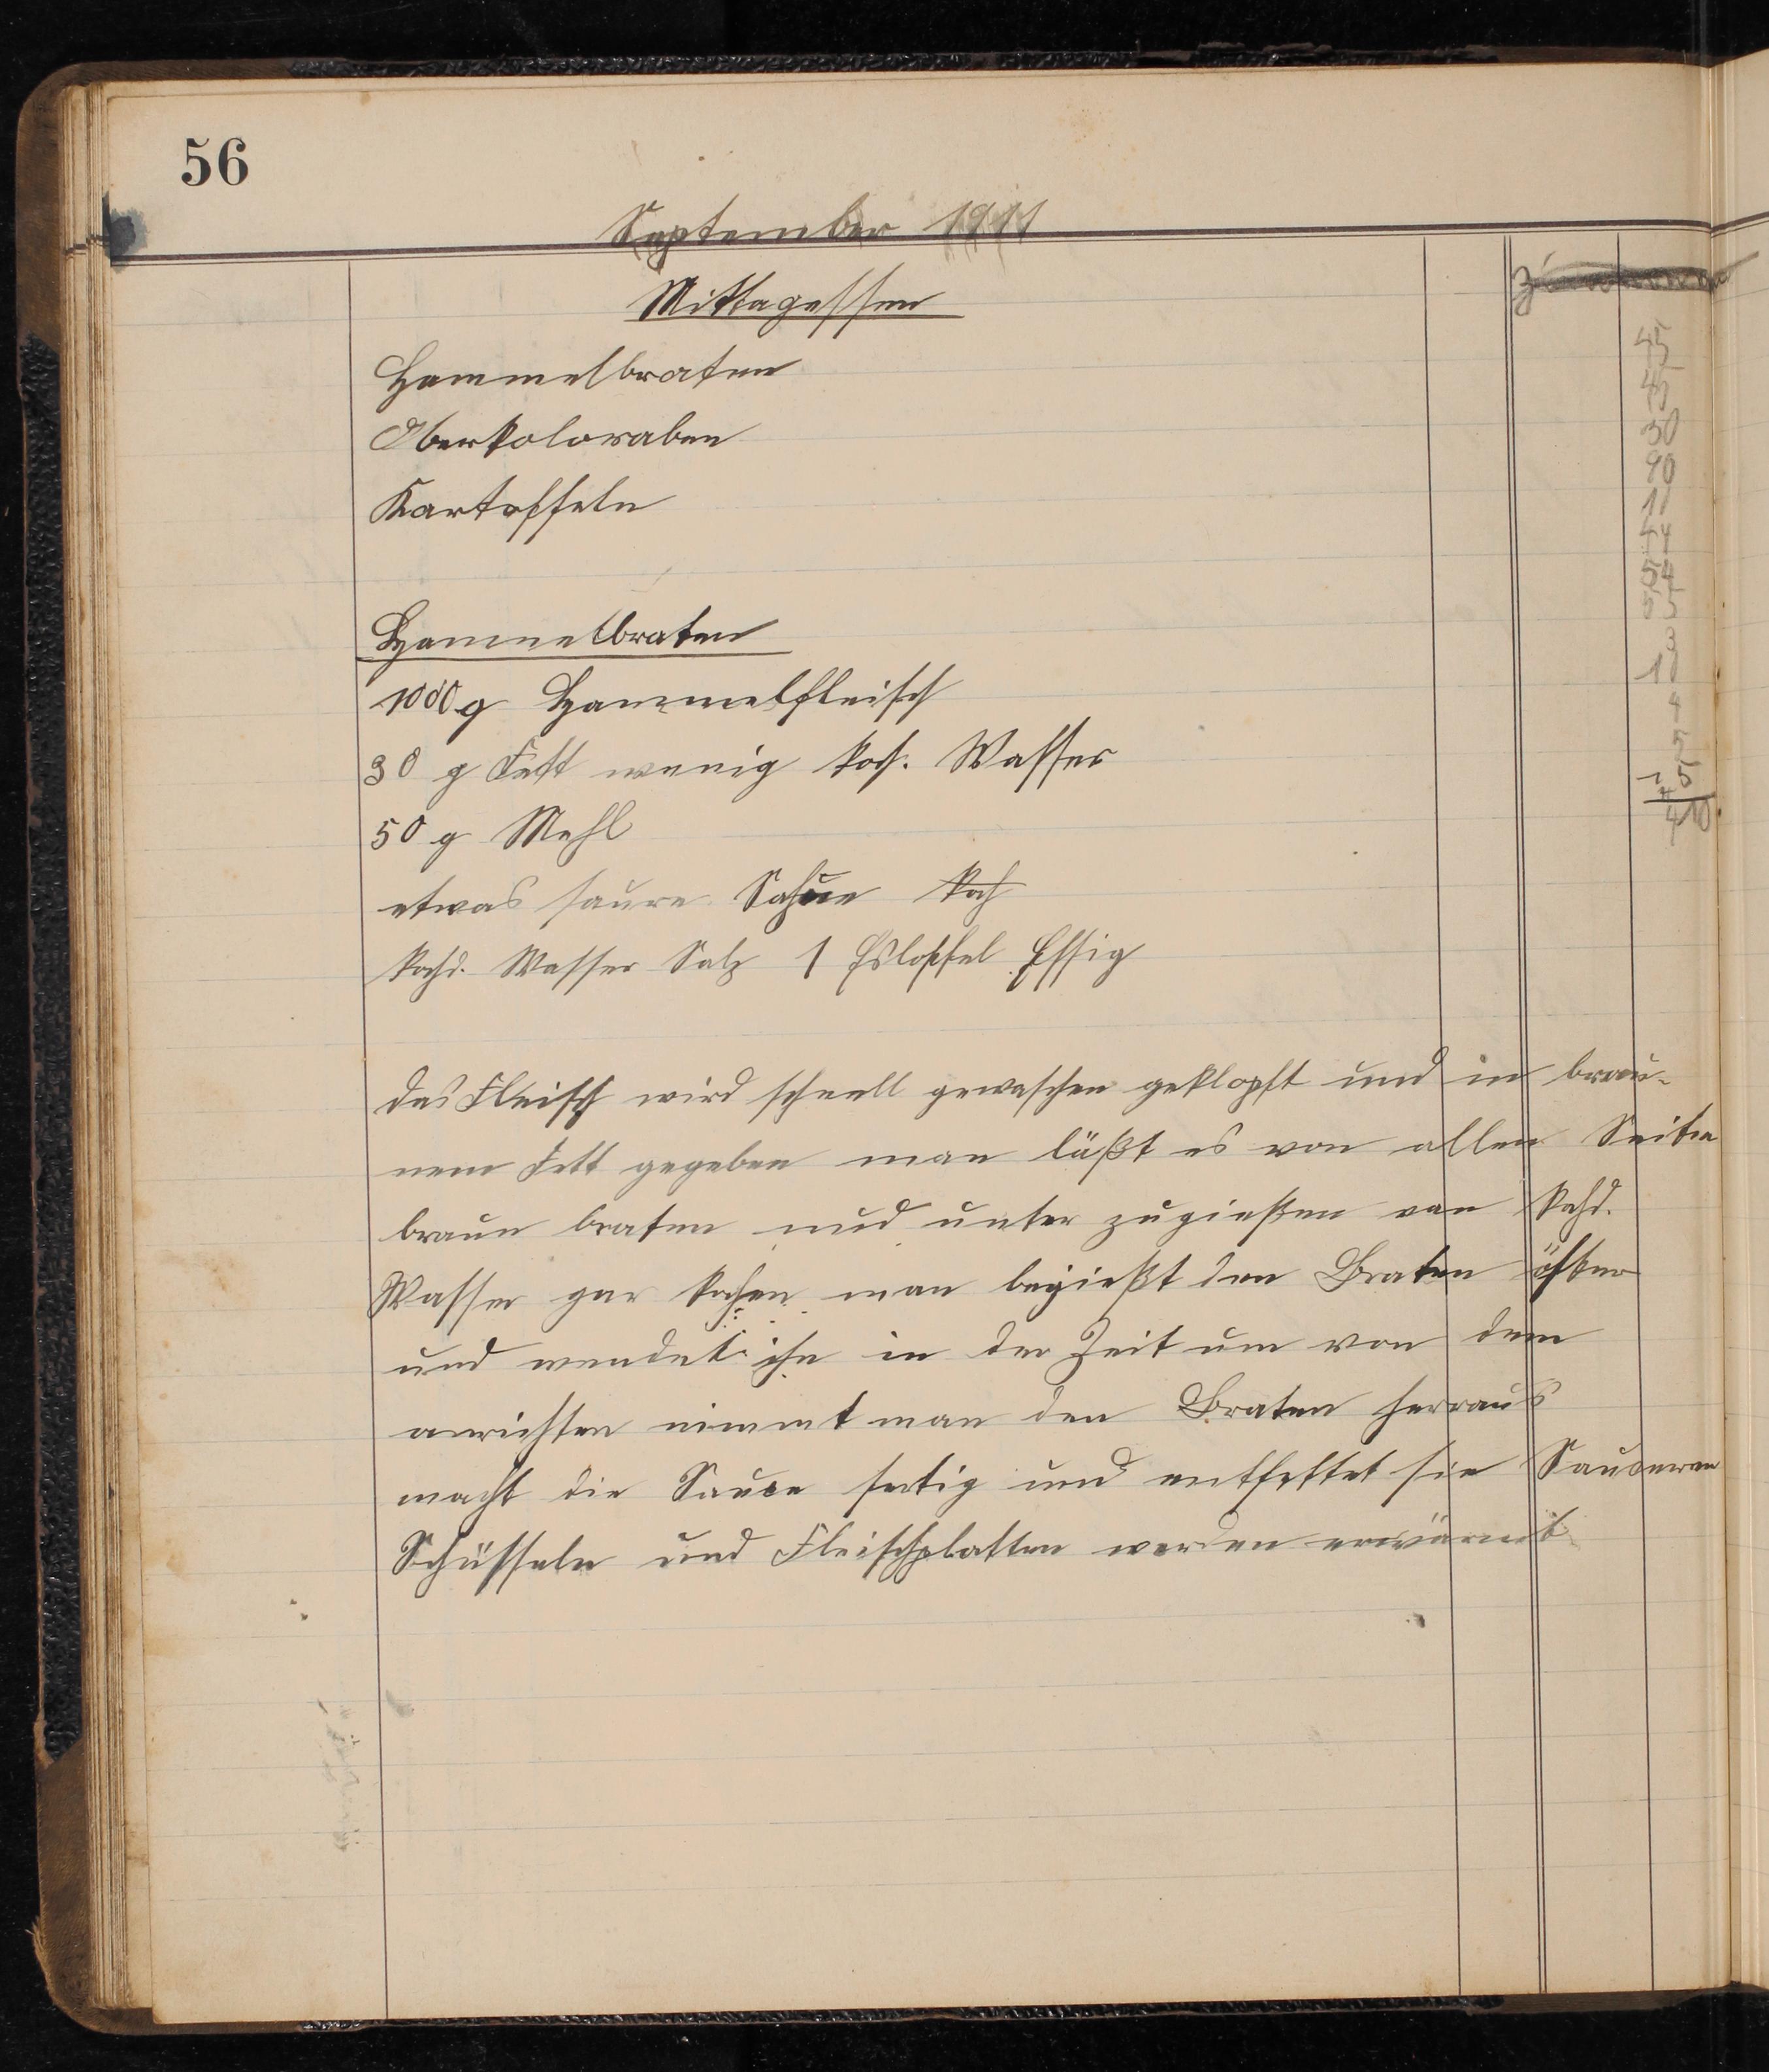 56
September 1911
Mittagessen
Hammelbraten
Oberkoloraben
Kartoffeln
Hammelbraten
1000 g Hammelfleisch
30 g Fett wenig koch. Wasser
50 g Mehl
etwas saure Sahne koch
kochd. Wasser Salz 1 Eslöffel Essig
das Fleisch wird schnell gewaschen geklopft und in brau-
nem Fett gegeben man läßt es von allen Seiten
braun braten und unter zugießen von kochd.
Wasser gar kochen man begießt den Braten öfter
und wendet ihn in der Zeit um von dem
anrichten nimmt man den Braten herraus
macht die Sauce fertig und entfettet sie
Schüsseln und Fleischplatten werden erwärmt
45
45
30
90
11
44
54
55
3
10
4
5
5